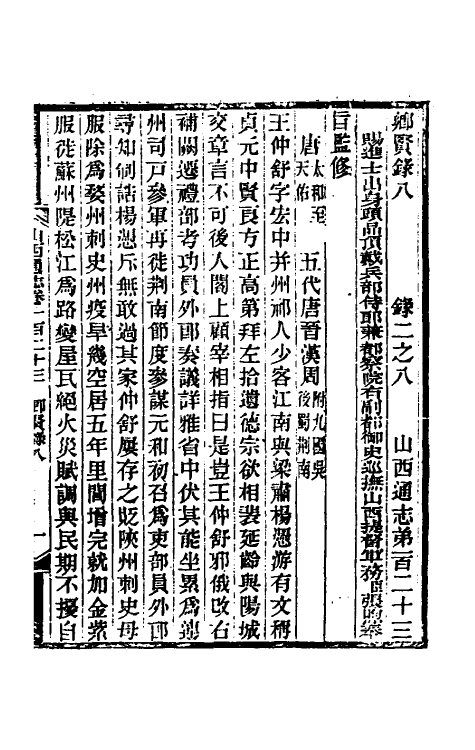 鄉賢錄八 錄二之八 山西通志第一百二十三
賜進士出身頭品頂戴兵部侍郎兼都察院右副都御史巡撫山西提督軍務臣張煦奉
旨監修
唐太和至天佑 五代唐晉漢周附九國吳後蜀荆南
王仲舒字宏中并州祁人少客江南與梁肅楊憑游有文稱
貞元中賢良方正高第拜左拾遺德宗欲相裴延齡與陽城
交章言不可後入閣上顧宰相指曰是豈王仲舒邪俄改右
補闕遷禮部考功員外郎奏議詳雅省中伏其能坐累爲連
州司戸參軍再徙荆南節度參謀元和初召爲吏部員外郎
尋知制誥楊憑斥無敢過其家仲舒屢存之貶陝州刺史母
服除爲婺州刺史州疫旱幾空居五年里閭增完就加金紫
服徙蘇州隄松江爲路變屋瓦絕火災賦調與民期不擾自
山西通志卷一百二十三 鄉賢錄八 一